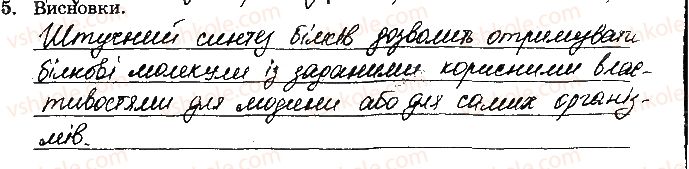 5. Висновки.
Штучний синтез білків дозволить отримувати
білкові молекули із заданими корисними влас-
тивостями для людини або для самих organіз-
мів.